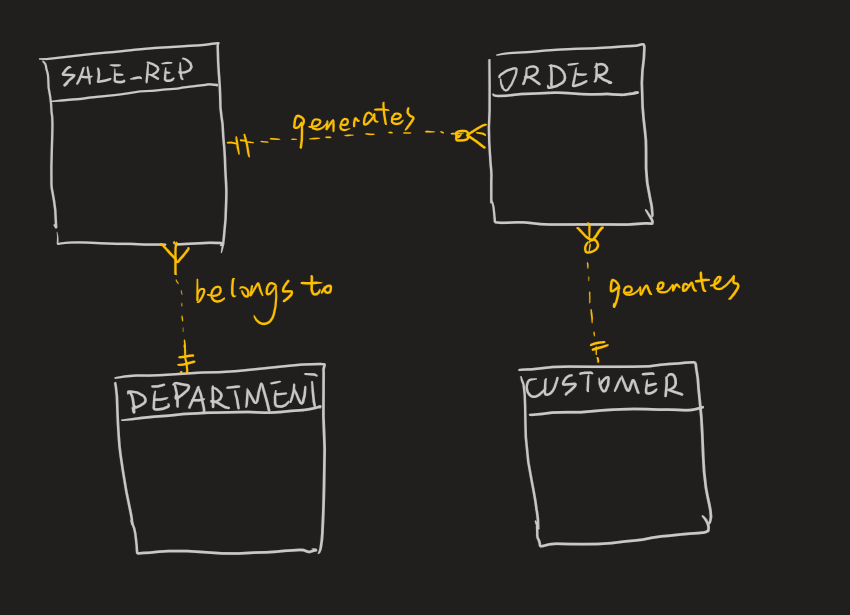 SALE_REP
ORDER
generates
belongs to
generates
DEPARTMENT
CUSTOMER